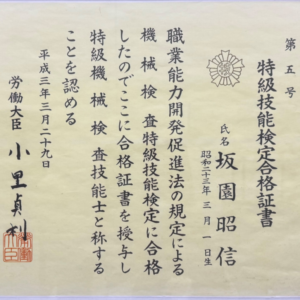 第五号
特級技能検定合格証書
氏名 坂園昭信
昭和二十三年 三月 一日生
職業能力開発促進法の規定による
機械検査特級技能検定に合格
したのでここに合格証書を授与し
特級機械検査技能士と称する
ことを認める
平成三年三月二十九日
労働大臣 小里貞利